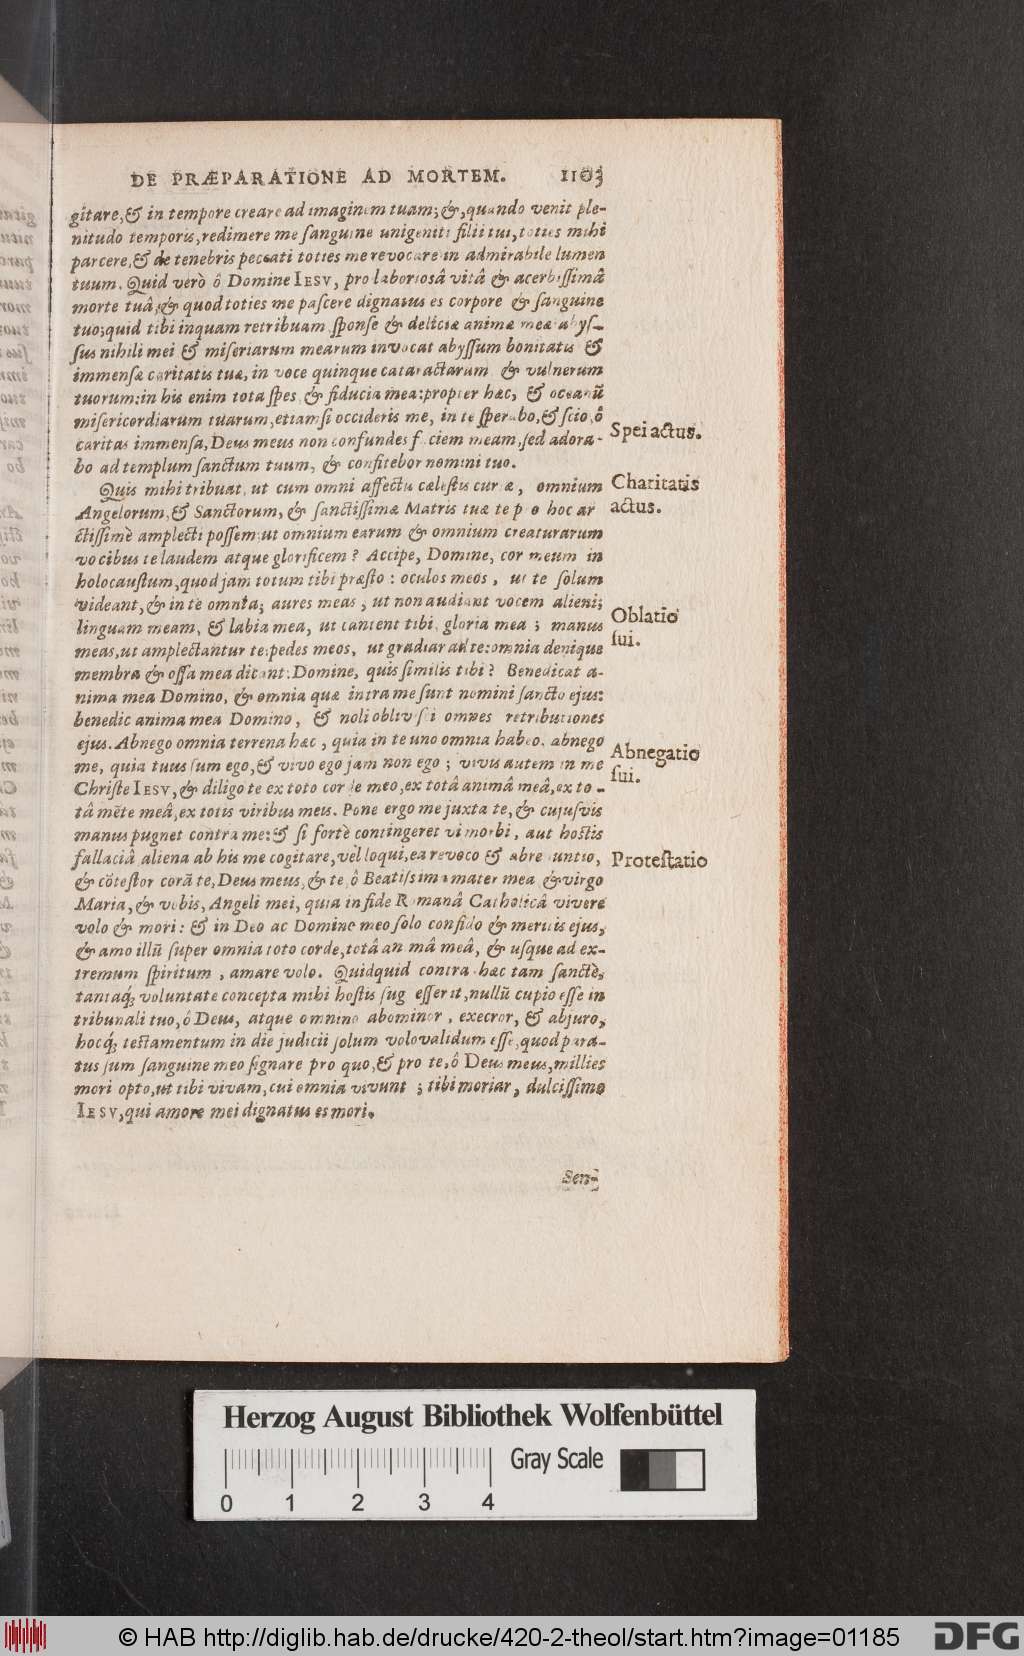 DE PRÆPARATIONE AD MORTEM. 1103
gitare, & in tempore creare ad imaginem tuam; &, quando venit ple-
nitudo temporis, redimere me sanguine unigeniti filii tui, toties mihi
parcere, & de tenebris peccati toties me revocare in admirabile lumen
tuum. Quid verò ô Domine IESV, pro laboriosâ vitâ & acerbissimâ
morte tuâ, & quod toties me pascere dignatus es corpore & sanguine
tuo; quid tibi inquam retribuam sponse & deliciæ animæ meæ abys-
sus nihili mei & miseriarum mearum invocat abyssum bonitatis &
immensæ caritatis tuæ, in voce quinque cataractarum & vulnerum
tuorum: in his enim tota spes & fiducia mea: propter hæc, & oceanū
misericordiarum tuarum, etiamsi occideris me, in te sperabo, & scio, ô
caritas immensa, Deus meus non confundes faciem meam, sed adora-
bo ad templum sanctum tuum, & confitebor nomini tuo.
Spei actus.
Quis mihi tribuat, ut cum omni affectu cælestis curiæ, omnium
Angelorum, & Sanctorum, & sanctissimæ Matris tuæ te pro hoc ar
ctissimè amplecti possem: ut omnium earum & omnium creaturarum
vocibus te laudem atque glorificem? Accipe, Domine, cor meum in
holocaustum, quod jam totum tibi præsto: oculos meos, ut te solum
videant, & in te omnia; aures meas, ut non audiant vocem alieni;
linguam meam, & labia mea, ut cantent tibi, gloria mea; manus
meas, ut amplectantur te: pedes meos, ut gradiar ad te: omnia denique
membra & ossa mea dicant: Domine, quis similis tibi? Benedicat a-
nima mea Domino, & omnia quæ intra me sunt nomini sancto ejus:
benedic anima mea Domino, & noli oblivisci omnes retributiones
ejus. Abnego omnia terrena hæc, quia in te uno omnia habeo. abnego
me, quia tuus sum ego, & vivo ego jam non ego; vivis autem in me
Christe IESV, & diligo te ex toto corde meo, ex totâ animâ meâ, ex to-
tâ mēte meâ, ex totis viribus meis. Pone ergo me juxta te, & cujusvis
manus pugnet contra me: & si fortè contingeret vi morbi, aut hostis
fallaciâ aliena ab his me cogitare, vel loqui, ea revoco & abrenuntio,
& cōtestor corā te, Deus meus, & te, ô Beatissima mater mea & virgo
Maria, & vobis, Angeli mei, quia in fide Romanâ Catholicâ vivere
volo & mori: & in Deo ac Domine meo solo confido & meritis ejus,
& amo illū super omnia toto corde, totâ animâ meâ, & usque ad ex-
tremum spiritum, amare volo. Quidquid contra hæc tam sanctè,
tantaq́; voluntate concepta mihi hostis suggesserit, nullū cupio esse in
tribunali tuo, ô Deus, atque omnino abominor, execror, & abjuro,
hocq́; testamentum in die judicii solum volo validum esse, quod para-
tus sum sanguine meo signare pro quo, & pro te, ô Deus meus, millies
mori opto, ut tibi vivam, cui omnia vivunt; tibi moriar, dulcissime
IESV, qui amore mei dignatus es mori.
Charitatis
actus.
Oblatio
sui.
Abnegatio
sui.
Protestatio
Sen-
Herzog August Bibliothek Wolfenbüttel
Gray Scale
0 1 2 3 4
© HAB http://diglib.hab.de/drucke/420-2-theol/start.htm?image=01185
DFG